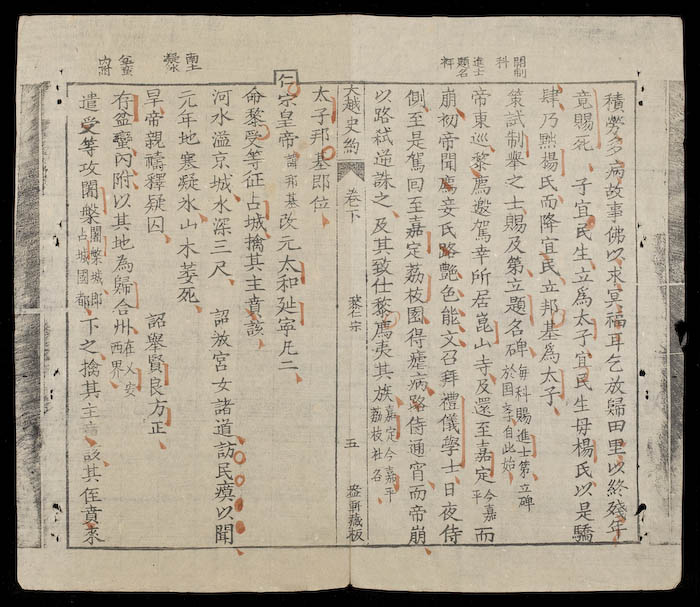 開制科
進士題名碑
積勞多病故事佛以求冥福耳乞放歸田里以終殘年
竟賜死 子宜民生立爲太子宜民生母楊氏以是驕
肆乃黜楊氏而降宜民立邦基爲太子
策試制舉之士賜及第立題名碑每科賜進士第立碑於國子自此始
帝東巡黎廌邀駕幸所居崑山寺及還至嘉定今嘉平而
崩初帝聞廌妾氏路艷色能文召拜禮儀學士日夜侍
側至是駕回至嘉定荔枝園得瘧病路侍通宵而帝崩
以路弒逆誅之及其致仕黎廌夷其族嘉定今嘉平荔枝社名
大越史約 卷下 黎仁宗 五 軒藏板
盆蠻內附
太子邦基即位
仁宗皇帝諱邦基改元太和延寧凡二
命黎受等征占城擒其主賁該
河水溢京城水深三尺 詔放宮女諸道訪民瘼以聞
元年地寒凝氷山木萎死
旱帝親禱釋疑囚 詔舉賢良方正
有盆蠻內附以其地為歸合州在乂安西界
遣受等攻闍槃闍槃城即占城國都下之擒其主賁該其侄賁來